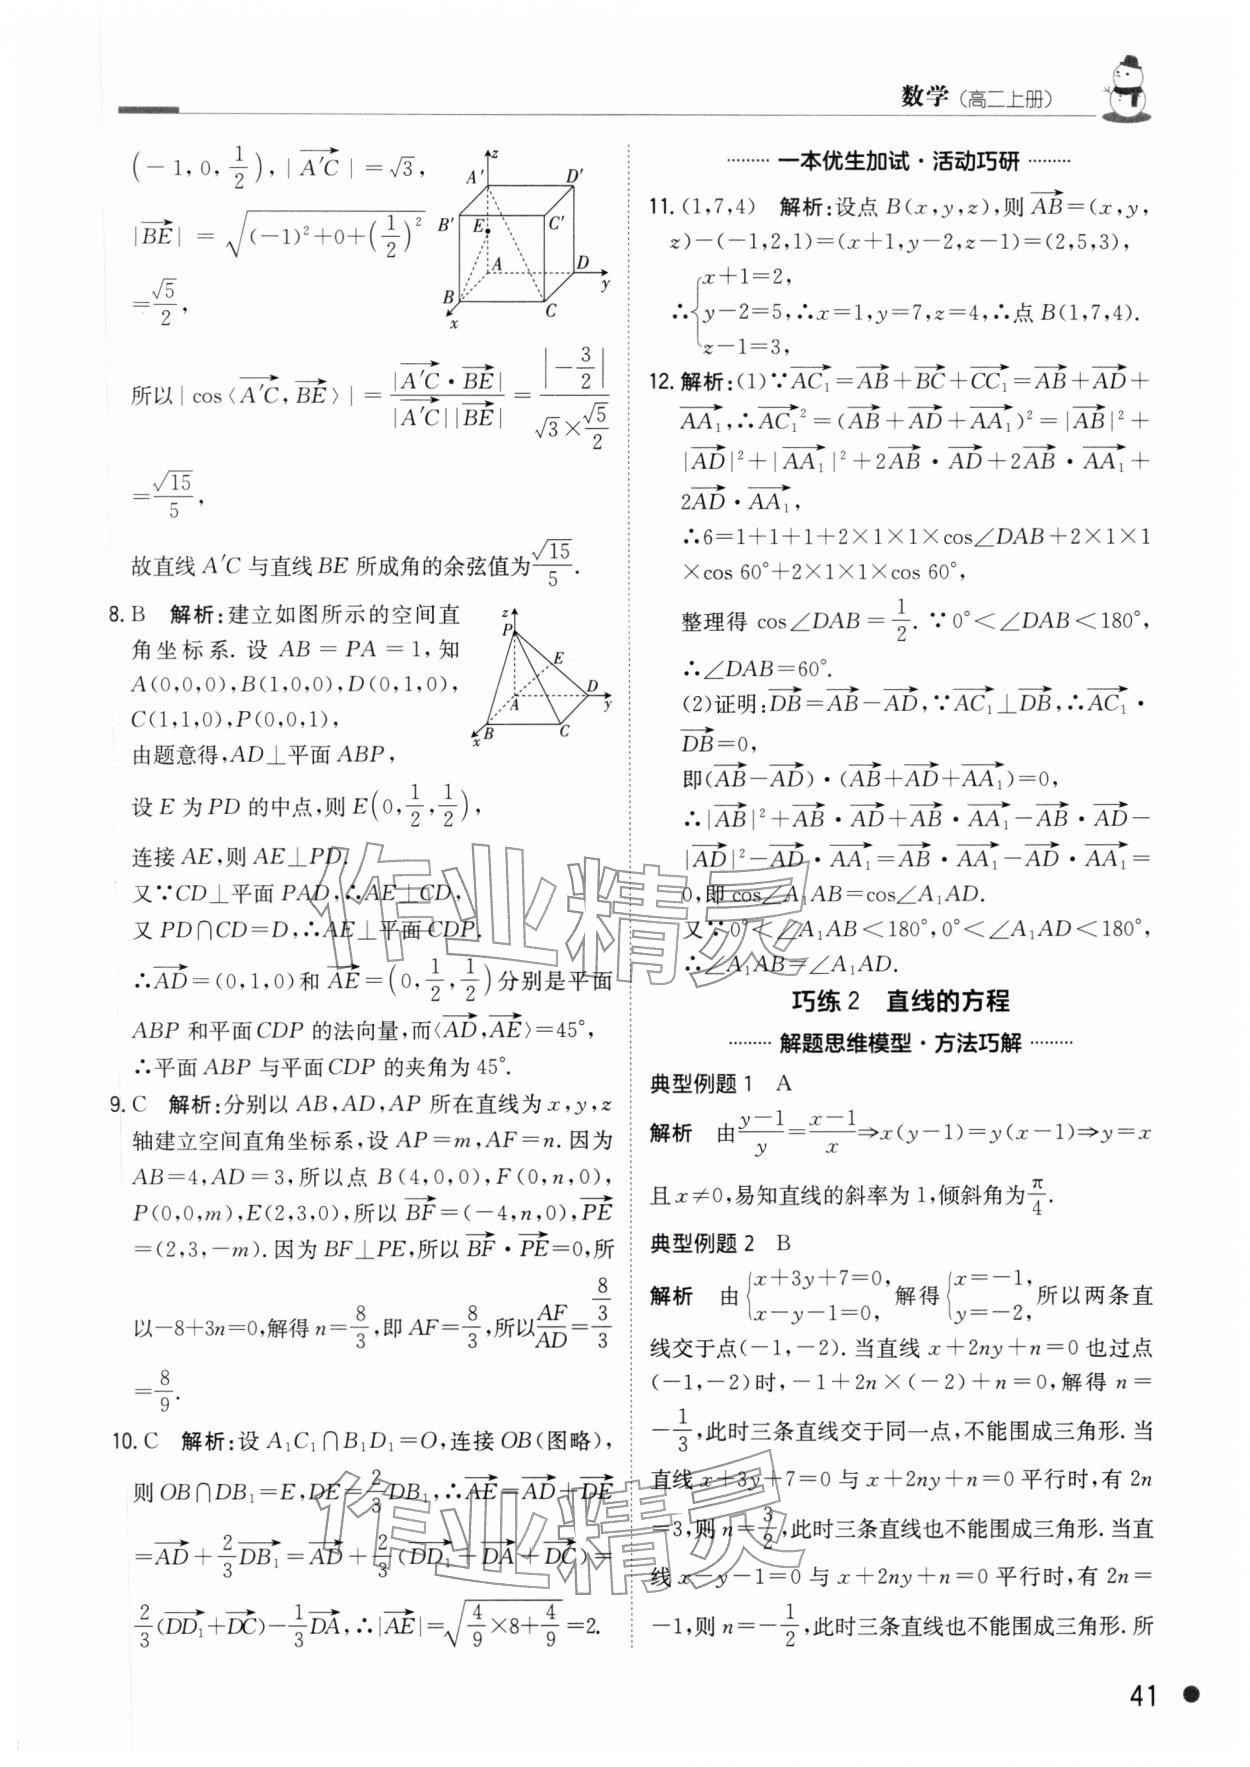 数学（高二上册）
(-1,0,1/2),|A'C→|=√3,
|BE→|=√((-1)²+0+(1/2)²)
=√5/2,
z A' D' B' C' E A D B C x y
所以|cos⟨A'C→,BE→⟩|=|A'C→·BE→|/(|A'C→||BE→|)=|-3/2|/(√3×√5/2)
=√15/5,
故直线A'C与直线BE所成角的余弦值为√15/5.
8. B 解析:建立如图所示的空间直
角坐标系.设AB=PA=1,知
A(0,0,0),B(1,0,0),D(0,1,0),
C(1,1,0),P(0,0,1),
z P E D A y B C x
由题意得,AD⊥平面ABP,
设E为PD的中点,则E(0,1/2,1/2),
连接AE,则AE⊥PD.
又∵CD⊥平面PAD,∴AE⊥CD,
又PD∩CD=D,∴AE⊥平面CDP.
∴AD→=(0,1,0)和AE→=(0,1/2,1/2)分别是平面
ABP和平面CDP的法向量,而⟨AD→,AE→⟩=45°,
∴平面ABP与平面CDP的夹角为45°.
9. C 解析:分别以AB,AD,AP所在直线为x,y,z
轴建立空间直角坐标系,设AP=m,AF=n.因为
AB=4,AD=3,所以点B(4,0,0),F(0,n,0),
P(0,0,m),E(2,3,0),所以BF→=(-4,n,0),PE→
=(2,3,-m).因为BF⊥PE,所以BF→·PE→=0,所
以-8+3n=0,解得n=8/3,即AF=8/3,所以AF/AD=(8/3)/3
=8/9.
10. C 解析:设A₁C₁∩B₁D₁=O,连接OB(图略),
则OB∩DB₁=E,DE=2/3DB₁,∴AE→=AD→+DE→
=AD→+2/3DB₁→=AD→+2/3(DD₁→+DA→+DC→)=
2/3(DD₁→+DC→)-1/3DA→,∴|AE→|=√(4/9×8+4/9)=2.
一本优生加试·活动巧研
11. (1,7,4) 解析:设点B(x,y,z),则AB→=(x,y,
z)-(-1,2,1)=(x+1,y-2,z-1)=(2,5,3),
x+1=2,
∴{y-2=5,∴x=1,y=7,z=4,∴点B(1,7,4).
z-1=3,
12. 解析:(1)∵AC₁→=AB→+BC→+CC₁→=AB→+AD→+
AA₁→,∴AC₁→²=(AB→+AD→+AA₁→)²=|AB→|²+
|AD→|²+|AA₁→|²+2AB→·AD→+2AB→·AA₁→+
2AD→·AA₁→,
∴6=1+1+1+2×1×1×cos∠DAB+2×1×1
×cos 60°+2×1×1×cos 60°,
整理得cos∠DAB=1/2.∵0°<∠DAB<180°,
∴∠DAB=60°.
(2)证明:DB→=AB→-AD→,∵AC₁→⊥DB→,∴AC₁→·
DB→=0,
即(AB→-AD→)·(AB→+AD→+AA₁→)=0,
∴|AB→|²+AB→·AD→+AB→·AA₁→-AB→·AD→-
|AD→|²-AD→·AA₁→=AB→·AA₁→-AD→·AA₁→=
0,即cos∠A₁AB=cos∠A₁AD.
又∵0°<∠A₁AB<180°,0°<∠A₁AD<180°,
∴∠A₁AB=∠A₁AD.
巧练2 直线的方程
解题思维模型·方法巧解
典型例题1 A
解析 由(y-1)/y=(x-1)/x⇒x(y-1)=y(x-1)⇒y=x
且x≠0,易知直线的斜率为1,倾斜角为π/4.
典型例题2 B
解析 由{x+3y+7=0,x-y-1=0,解得{x=-1,y=-2,所以两条直
线交于点(-1,-2).当直线x+2ny+n=0也过点
(-1,-2)时,-1+2n×(-2)+n=0,解得n=
-1/3,此时三条直线交于同一点,不能围成三角形.当
直线x+3y+7=0与x+2ny+n=0平行时,有2n
=3,则n=3/2,此时三条直线也不能围成三角形.当直
线x-y-1=0与x+2ny+n=0平行时,有2n=
-1,则n=-1/2,此时三条直线也不能围成三角形.所
41
作业精灵
作业精灵